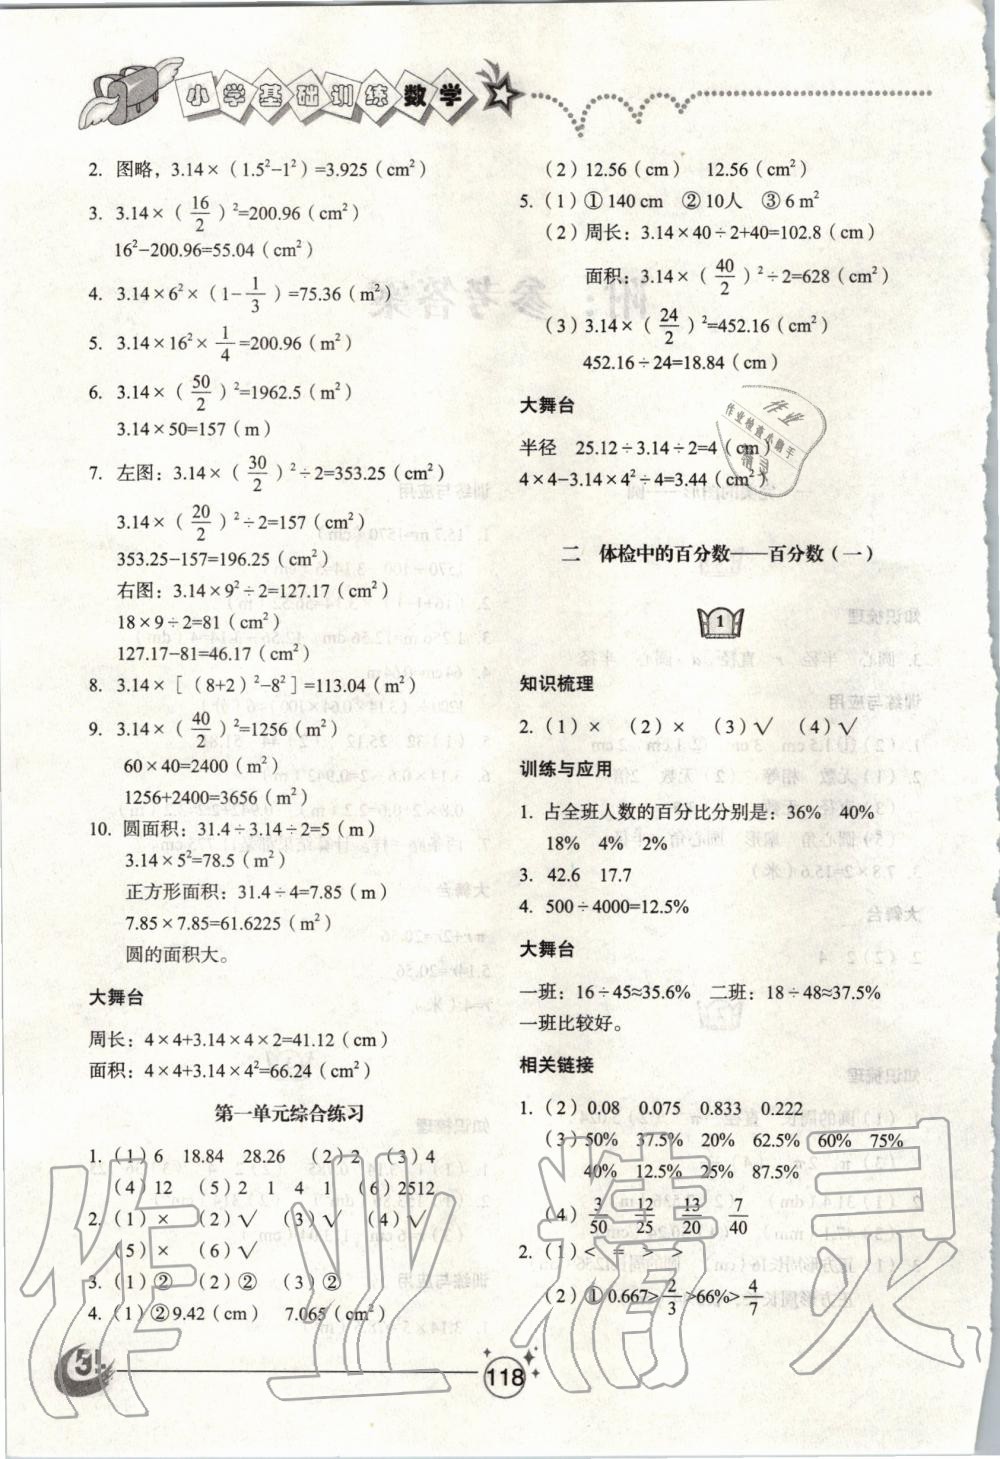 小学基础训练数学
2. 图略，3.14×（1.5²-1²）=3.925（cm²）
3. 3.14×（16/2）²=200.96（cm²）
16²-200.96=55.04（cm²）
4. 3.14×6²×（1-1/3）=75.36（m²）
5. 3.14×16²×1/4=200.96（m²）
6. 3.14×（50/2）²=1962.5（m²）
3.14×50=157（m）
7. 左图：3.14×（30/2）²÷2=353.25（cm²）
3.14×（20/2）²÷2=157（cm²）
353.25-157=196.25（cm²）
右图：3.14×9²÷2=127.17（cm²）
18×9÷2=81（cm²）
127.17-81=46.17（cm²）
8. 3.14×［（8+2）²-8²］=113.04（m²）
9. 3.14×（40/2）²=1256（m²）
60×40=2400（m²）
1256+2400=3656（m²）
10. 圆面积：31.4÷3.14÷2=5（m）
3.14×5²=78.5（m²）
正方形面积：31.4÷4=7.85（m）
7.85×7.85=61.6225（m²）
圆的面积大。
大舞台
周长：4×4+3.14×4×2=41.12（cm）
面积：4×4+3.14×4²=66.24（cm²）
第一单元综合练习
1.（1）6 18.84 28.26 （2）2 （3）4
（4）12 （5）2 1 4 1 （6）2512
2.（1）× （2）√ （3）√ （4）√
（5）× （6）√
3.（1）② （2）② （3）②
4.（1）②9.42（cm） 7.065（cm²）
（2）12.56（cm） 12.56（cm²）
5.（1）①140 cm ②10人 ③6 m²
（2）周长：3.14×40÷2+40=102.8（cm）
面积：3.14×（40/2）²÷2=628（cm²）
（3）3.14×（24/2）²=452.16（cm²）
452.16÷24=18.84（cm）
大舞台
半径 25.12÷3.14÷2=4（cm）
4×4-3.14×4²÷4=3.44（cm²）
作业
作业检查小助手
二 体检中的百分数——百分数（一）
1
知识梳理
2.（1）× （2）× （3）√ （4）√
训练与应用
1. 占全班人数的百分比分别是：36% 40%
18% 4% 2%
3. 42.6 17.7
4. 500÷4000=12.5%
大舞台
一班：16÷45≈35.6% 二班：18÷48≈37.5%
一班比较好。
相关链接
1.（2）0.08 0.075 0.833 0.222
（3）50% 37.5% 20% 62.5% 60% 75%
40% 12.5% 25% 87.5%
（4）3/50 12/25 13/20 7/40
2.（1）< = > >
（2）①0.667>2/3>66%>4/7
118
作业精灵